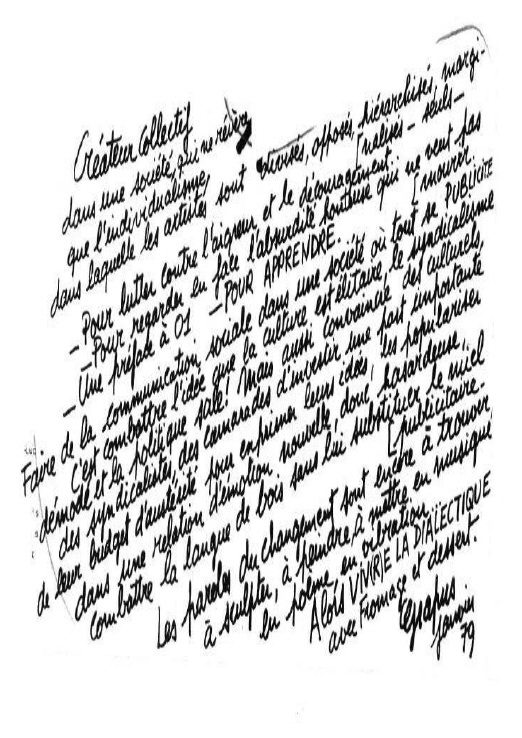 Créateur Collectif
dans une société qui ne révère
que l'individualisme
dans laquelle les artistes sont divisés, opposés, hiérarchisés, margi-
[nalisés – seuls –
– Pour lutter contre l'aigreur et le découragement..
– Pour regarder en face l'absurdité boiteuse qui ne veut pas
[mourir.
– Une préface à 01 – POUR APPRENDRE.
Faire de la communication sociale dans une société où tout se PUBLICITE
C'est combattre l'idée que la culture est élitaire, le syndicalisme
démodé et la politique sale! Mais aussi convaincre des culturels,
des syndicalistes, des camarades d'investir une part importante
de leur budget d'austérité pour exprimer leurs idées, les populariser
dans une relation d'émotion nouvelle, donc hasardeuse,
combattre la langue de bois sans lui substituer le miel
[publicitaire.
Les paroles du changement sont encore à trouver,
à sculpter, à peindre, à mettre en musique
en poème en vibration.
Alors VIV(R)E LA DIALECTIQUE
avec Fromage et dessert.
Grapus.
janvier
79